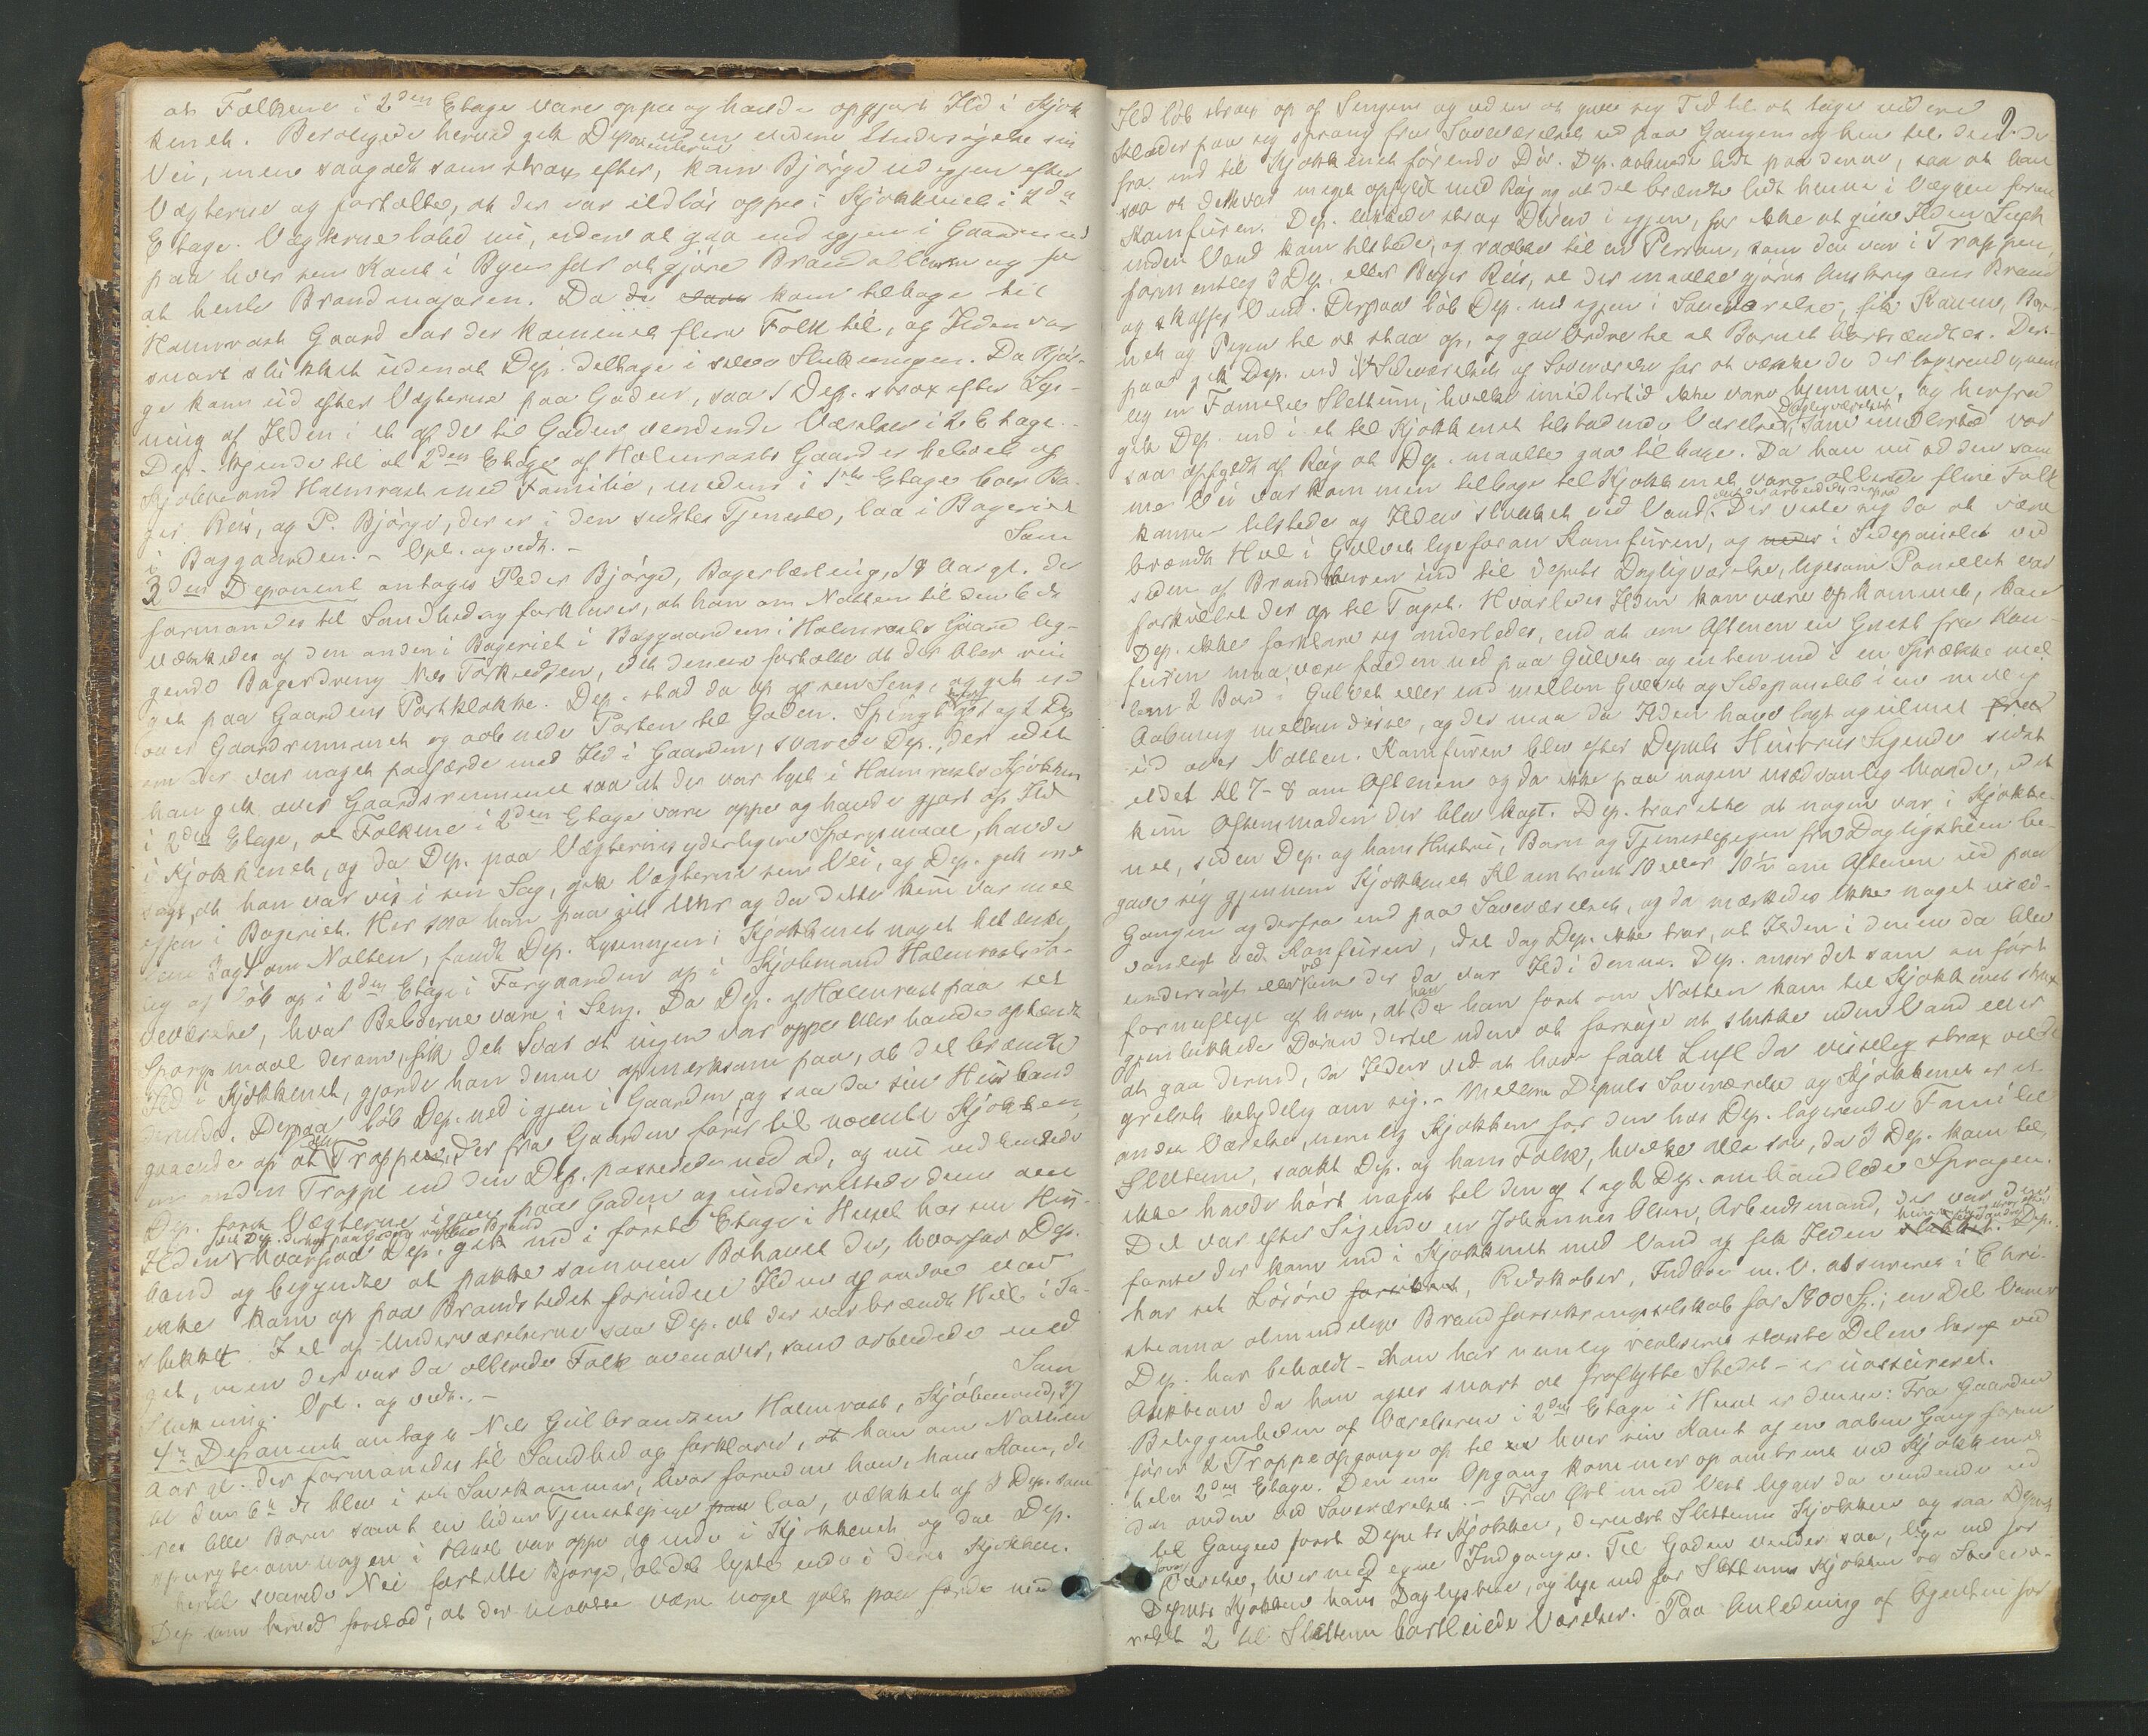 at Folkene i 2den Etage vare oppe og havde opgjort Ild i Kjøk
kenet. Beroligede herved gik Deponenterne uden videre Undersøgelse sin
Vei, men saagodt som strax efter, kom Bjørge ud igjen efter
Vægterne og fortalte, at der var ildløs oppe i Kjøkkenet i 2den
Etage. Vægterne løb nu, uden at gaa ind igjen i Gaarden ud
paa hver sin Kant i Byen for at gjøre Brandallarm og for
at hente Brandmajoren. Da de vare kom tilbage til
Holmrasts Gaard var der kommet flere Folk til, og Ilden var
snart slukket uden at Dep. deltage i selve Slukningen. Da Bjør-
ge kom ud efter Vægterne paa Gaden, saa 1 Dep. strax efter Lys-
ning af Ilden i et af de til Gaden vendende Værelser i 2. Etage.
Dep. kjende til at 2den Etage af Holmrasts Gaard er beboet af
Kjøbmand Holmrast med Familie, medens i 1ste Etage boer Ba-
ger Reis, og P. Bjørge, der er i den sidstes Tjeneste, laa i Bageriet
i Baggaarden. - Opl. og vedt. -
Som
3die Deponent antages Peder Bjørge, Bagerlærling, 18 Aar gl. der
formanedes til Sandhed og forklarer, at han om Natten til den 6 ds
vækkedes af den anden i Bageriet i Baggaarden i Holmrasts Gaard lig-
gende Bagerdreng Nils Torkildsen, idet denne fortalte at der blev rin
get paa Gaardens Portklokke. Dep. stod da op af sin Seng, og gik ud
over Gaardsrummet og aabnede Porten til Gaden. Spurgt af 1 og 2 Dep
om der var noget paafærde med Ild i Gaarden, svarede Dep., der idet
han gik over Gaardsrummet saa at der var lyst i Holmrasts Kjøkken
i 2den Etage, at Folkene i 2den Etage vare oppe og havde gjort op Ild
i Kjøkkenet, og da Dep. paa Vægternes yderligere Spørgsmaal, havde
sagt, at han var vis i sin Sag, gik Vægterne sin Vei, og Dep. gik ind
igjen i Bageriet. Her saa han paa sit Uhr og da dette kun var mel
lem 3 og 4 om Natten, fandt Dep. Lysningen i Kjøkkenet noget betænke
lig og løb op i 2den Etage i Forgaarden op i Kjøbmand Holmrasts So-
veværelse, hvor Beboerne vare i Seng. Da Dep. af Holmrast paa sit
Spørgsmaal derom, fik det Svar at ingen var oppe eller havde optændt
Ild i Kjøkkenet, gjorde han denne opmerksom paa, at det brændte
derinde. Derpaa løb Dep. ned igjen i Gaarden og saa da sin Husbond
gaaende op ad den Trappe, der fra Gaarden fører til nævnte Kjøkken,
en anden Trappe end den Dep. passerede ned ad, og nu underrettede
Dep. først Vægterne igjen paa Gaden og underrettede dem om
Ilden hvorpaa Dep. gik ind i første Etage i Huset hos sin Hus-
bond og begyndte at pakke sammen Bohavet der, hvorfor Dep.
ikke kom op paa Brandstedet forinden Ilden af andre var
slukket. I et af Underværelserne saa Dep. at der var brændt Hul i Ta-
get, men der var da allerede Folk ovenover, som arbeidede med
Slukning. Opl. og vedt. -
Som
4de Deponent antages Nils Gulbrandsen Holmrast, Kjøbmand, 37
Aar gl. der formanedes til Sandhed og forklarer, at han om Natten
til den 6te ds blev i sit Sovekammer, hvor foruden han, hans Kone, de
res lille Barn samt en liden Tjenestepige laa, vækket af 3 Dep. som
spurgte om nogen i Huset var oppe og inde i Kjøkkenet og da Dep.
hertil svarede Nei fortalte Bjørge, at det lyste inde i deres Kjøkken.
Dep som herved forstod, at der maatte være noget galt paa færde med
9.
Ild løb strax op af Sengen og uden at give sig Tid til at tage videre
Klæder paa sig sprang fra Soveværelset ud paa Gangen og hen til den der
fra ind til Kjøkkenet førende Dør. Dep. aabnede lidt paa denne, saa at han
saa at det var meget opfyldt med Røg og at det brændte lidt henne i Væggen foran
Komfuren. Dep. lukkede strax Døren i igjen, for ikke at give Ilden Luft
inden Vand kom tilstede, og raabte til en Person, som der var i Trappen,
formentlig 3 Dep. eller Bager Reis, at der maatte gjøres Anskrig om Brand
og skaffes Vand. Derpaa løb Dep. ind igjen i Soveværelset, fik Konen, Bar-
net og Pigen til at staa op, og gav Ordre til at Barnet bortsendtes. Der-
paa gik Dep. ind i et Sideværelset af Soveværelset for at vække de der logerende, nem
lig en Familie Slettum, hvilke imidlertid ikke vare hjemme, og herfra
gik Dep. ind i et til Kjøkkenet tilstødende Værelse, Dagligværelset som imidlertid var
saa opfyldt af Røg at Dep. maatte gaa tilbage. Da han nu ad den sam
me Vei var kommen tilbage til Kjøkkenet, vare allerede flere Folk
komne tilstede og Ilden slukket ved Vand. Der viste sig da at være
brændt Hul i Gulvet lige foran Komfuren, og i Sidepanelet ved
siden af Brandmuren ind til Deputs Dagligværelse, ligesom Panelet var
forkullet der op til Taget. Hvorledes Ilden kan være opkommet, kan
Dep. ikke forklare sig anderledes, end at om Aftenen en Gnist fra Kom-
furen maa være falden ned paa Gulvet og enten ind i en Sprække mel
lem 2 Bord i Gulvet eller ind mellem Gulvet og Sidepanelet i en mulig
Aabning mellem disse, og der maa da Ilden have lagt og ulmet
ud over Natten. Komfuren blev efter Deputs Hustrues Sigende sidst
ildet Kl 7-8 om Aftenen og da ikke paa nogen usædvanlig Maade, idet
kun Aftensmaden der blev kogt. Dep. tror ikke at nogen var i Kjøkke-
net, siden Dep. og hans Hustru, Barn og Tjenestepigen fra Dagligstuen be-
gave sig gjennem Kjøkkenet Kl omtrent 10 eller 10½ om Aftenen ud paa
Gangen og derfra ind paa Soveværelset, og da mærkedes ikke noget usæd-
vanligt ved Komfuren, idet dog Dep. ikke tror, at Ilden i denne da blev
undersøgt eller om der da var Ild i denne. Dep. anser det som enført
fornuftige af ham, at da han først om Natten kom til Kjøkkenet strax
gjenlukkede Døren dertil uden at forsøge at slukke uden Vand eller
at gaa derind, da Ilden ved at have faaet Luft da visselig strax vilde
grebet betydelig om sig. - Mellem Deputs Soveværelse og Kjøkkenet er et
andet Værelse, nemlig Kjøkken for den hos Dep. logerende Familie
Slettum, saakt Dep. og hans Folk, hvilke alle sov, da 3 Dep. kom til,
ikke havde hørt noget til den af 1 og 2 Dep. omhandlede Spragen.
Det var efter Sigende en Johannes Olsen, Arbeidsmand, der var den
første der kom ind i Kjøkkenet med Vand og fik Ilden slukket. Dep.
har sit Løsøre, Redskaber, Indbo m. V. assureret i Chri-
stiania almindelige Brandforsikringsselskab for 1400 Sp.; en Del Varer
Dep. har beholdt - Han har nemlig realiseret største Delen heraf ved
Auktion da han agter snart at fraflytte Stedet - er uassureret.
Beliggenheden af Værelserne i 2den Etage i Huset er denne: Fra Gaarden
fører 2 Trappeopgange op til hver sin Kant af en aaben Gang foran
hele 2den Etage. Den ene Opgang kommer op omtrent ved Kjøkkenet
den anden ved Soveværelset. - Fra Øst mod Vest ligger da vendende ud
til Gangen først Deputs Kjøkken, dernæst Slettums Kjøkken og saa Deputs
Sove Værelse, hver med egne Indgange. Til Gaden vender saa, lige ind for
Deputs Kjøkken hans Dagligstue, og lige ind for Slettums Kjøkken og Soveva-
relset 2 til Slettum bortleiede Værelser. Paa Anledning af Agenten for